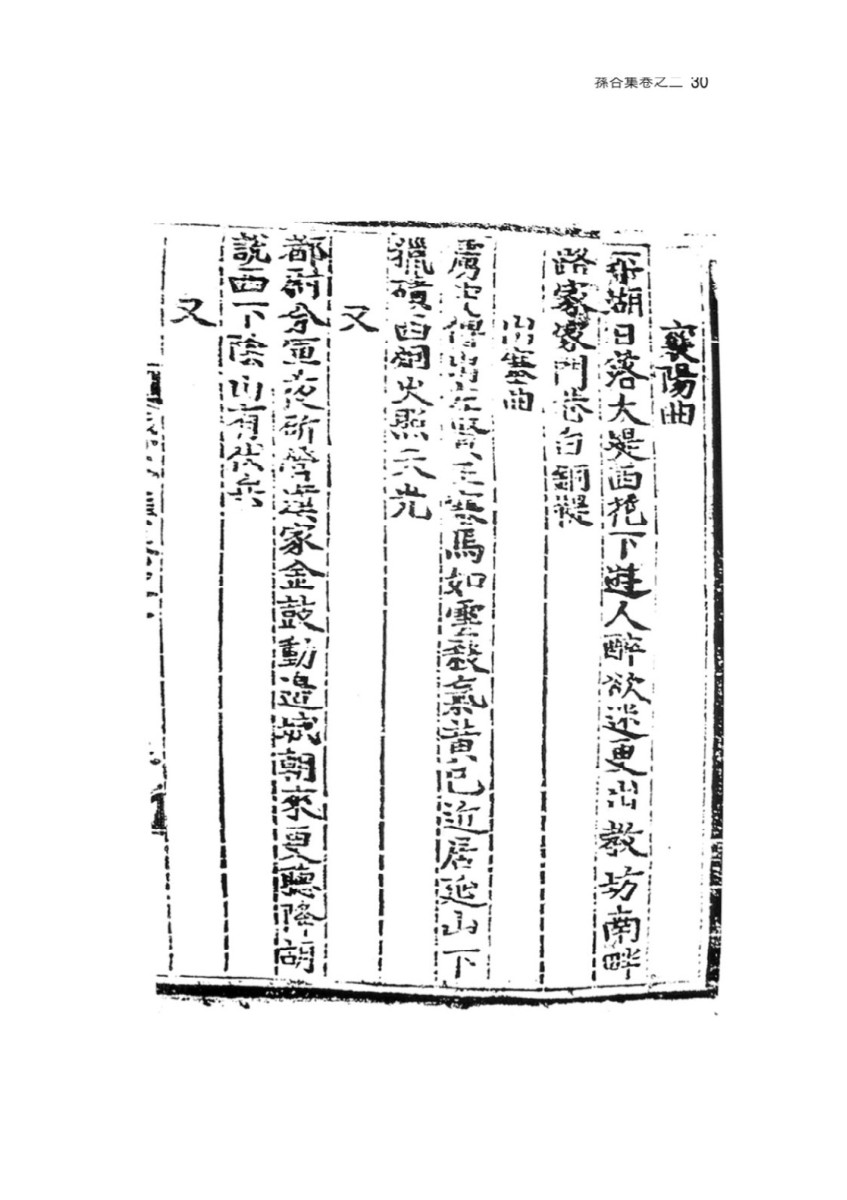 孫谷集卷之二 30
襄陽曲
平湖日落大堤西花下遊人醉欲迷更出教坊南畔
路家家門巷白銅鞮
出塞曲
虜中傳出左賢王塞馬如雲殺氣黃已近居延山下
獵磧西烟火照天光
又
都尉分軍夜斫營漢家金鼓動邊城朝來更聽降胡
說西下陰山有伏兵
又